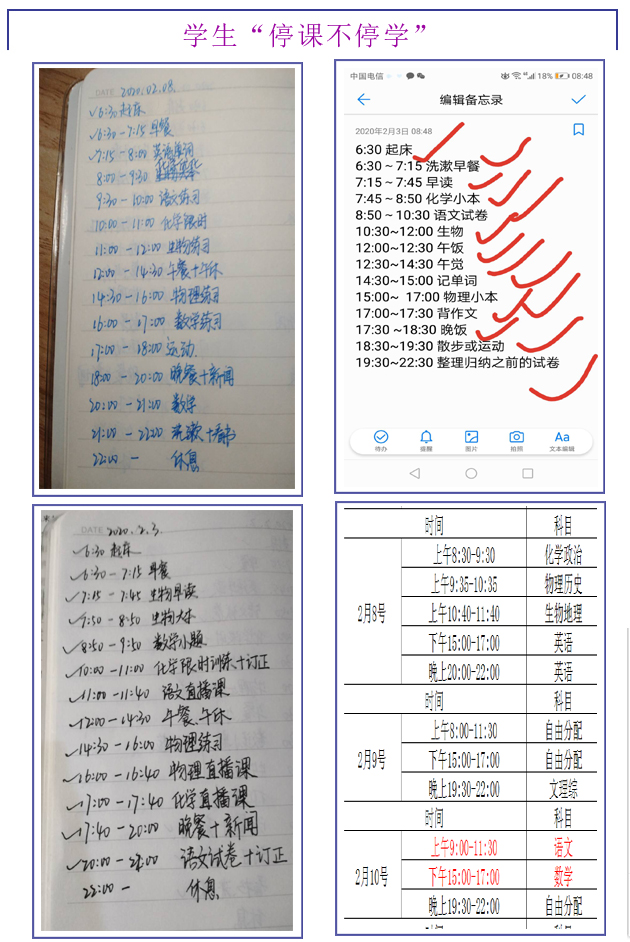 学生“停课不停学”
DATE 2020.02.08.
6:30 起床
6:30-7:15 早餐
7:15-8:00 英语单词
8:00-9:30
9:30-10:00 语文练习
10:00-11:00 化学限时
11:00-12:00 生物练习
12:00-14:30 午餐+午休
14:30-16:00 物理练习
16:00-17:00 数学练习
17:00-18:00 运动.
18:00-20:00 晚餐+新闻
20:00-21:00 数学
21:00-22:00 洗漱+看书
22:00- 休息
中国电信
18% 08:48
编辑备忘录
2020年2月3日 08:48
6:30 起床
6:30~7:15 洗漱早餐
7:15~7:45 早读
7:45~8:50 化学小本
8:50~10:30 语文试卷
10:30~12:00 生物
12:00~12:30 午饭
12:30~14:30 午觉
14:30~15:00 记单词
15:00~ 17:00 物理小本
17:00~17:30 背作文
17:30 ~18:30 晚饭
18:30~19:30 散步或运动
19:30~22:30 整理归纳之前的试卷
待办 提醒 图片 拍照 文本编辑
Aa
DATE 2020.2.3.
6:30 起床
6:30-7:15 早餐
7:15-7:45 生物早读
7:50-8:50 生物大本
8:50-9:50 数学小题
10:00-11:00 化学限时训练+订正
11:00-11:40 语文直播课
12:00-14:30 午餐.午休
14:30-16:00 物理练习
16:00-16:40 物理直播课
17:00-17:40 化学直播课
17:40-20:00 晚餐+新闻
20:00-22:00 语文试卷+订正
22:00- 休息
时间 科目
2月8号
上午8:30-9:30 化学政治
上午9:35-10:35 物理历史
上午10:40-11:40 生物地理
下午15:00-17:00 英语
晚上20:00-22:00 英语
时间 科目
2月9号
上午8:00-11:30 自由分配
下午15:00-17:00 自由分配
晚上19:30-22:00 文理综
时间 科目
2月10号
上午9:00-11:30 语文
下午15:00-17:00 数学
晚上19:30-22:00 自由分配